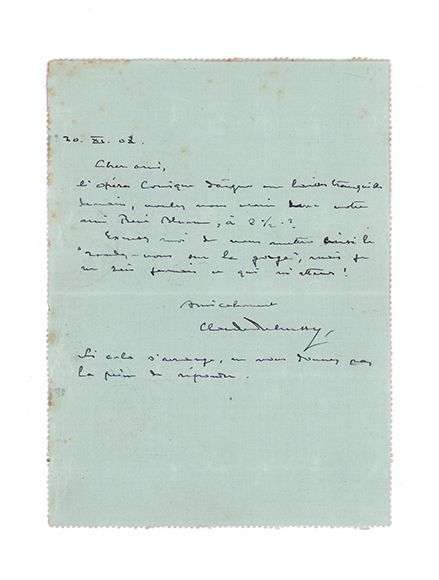 20. XI. 02.
Cher ami,
l'opéra Comique daigne me laisser tranquille
demain, voulez vous venir avec notre
ami René , à 2 h ½ ?
Excusez moi de vous mettre ainsi le
"rendez-vous sur la gorge", mais je
ne sais jamais ce qui m'attend !
Amicalement
Claude Debussy,
Si cela s'arrange, ne vous donnez pas
la peine de répondre.